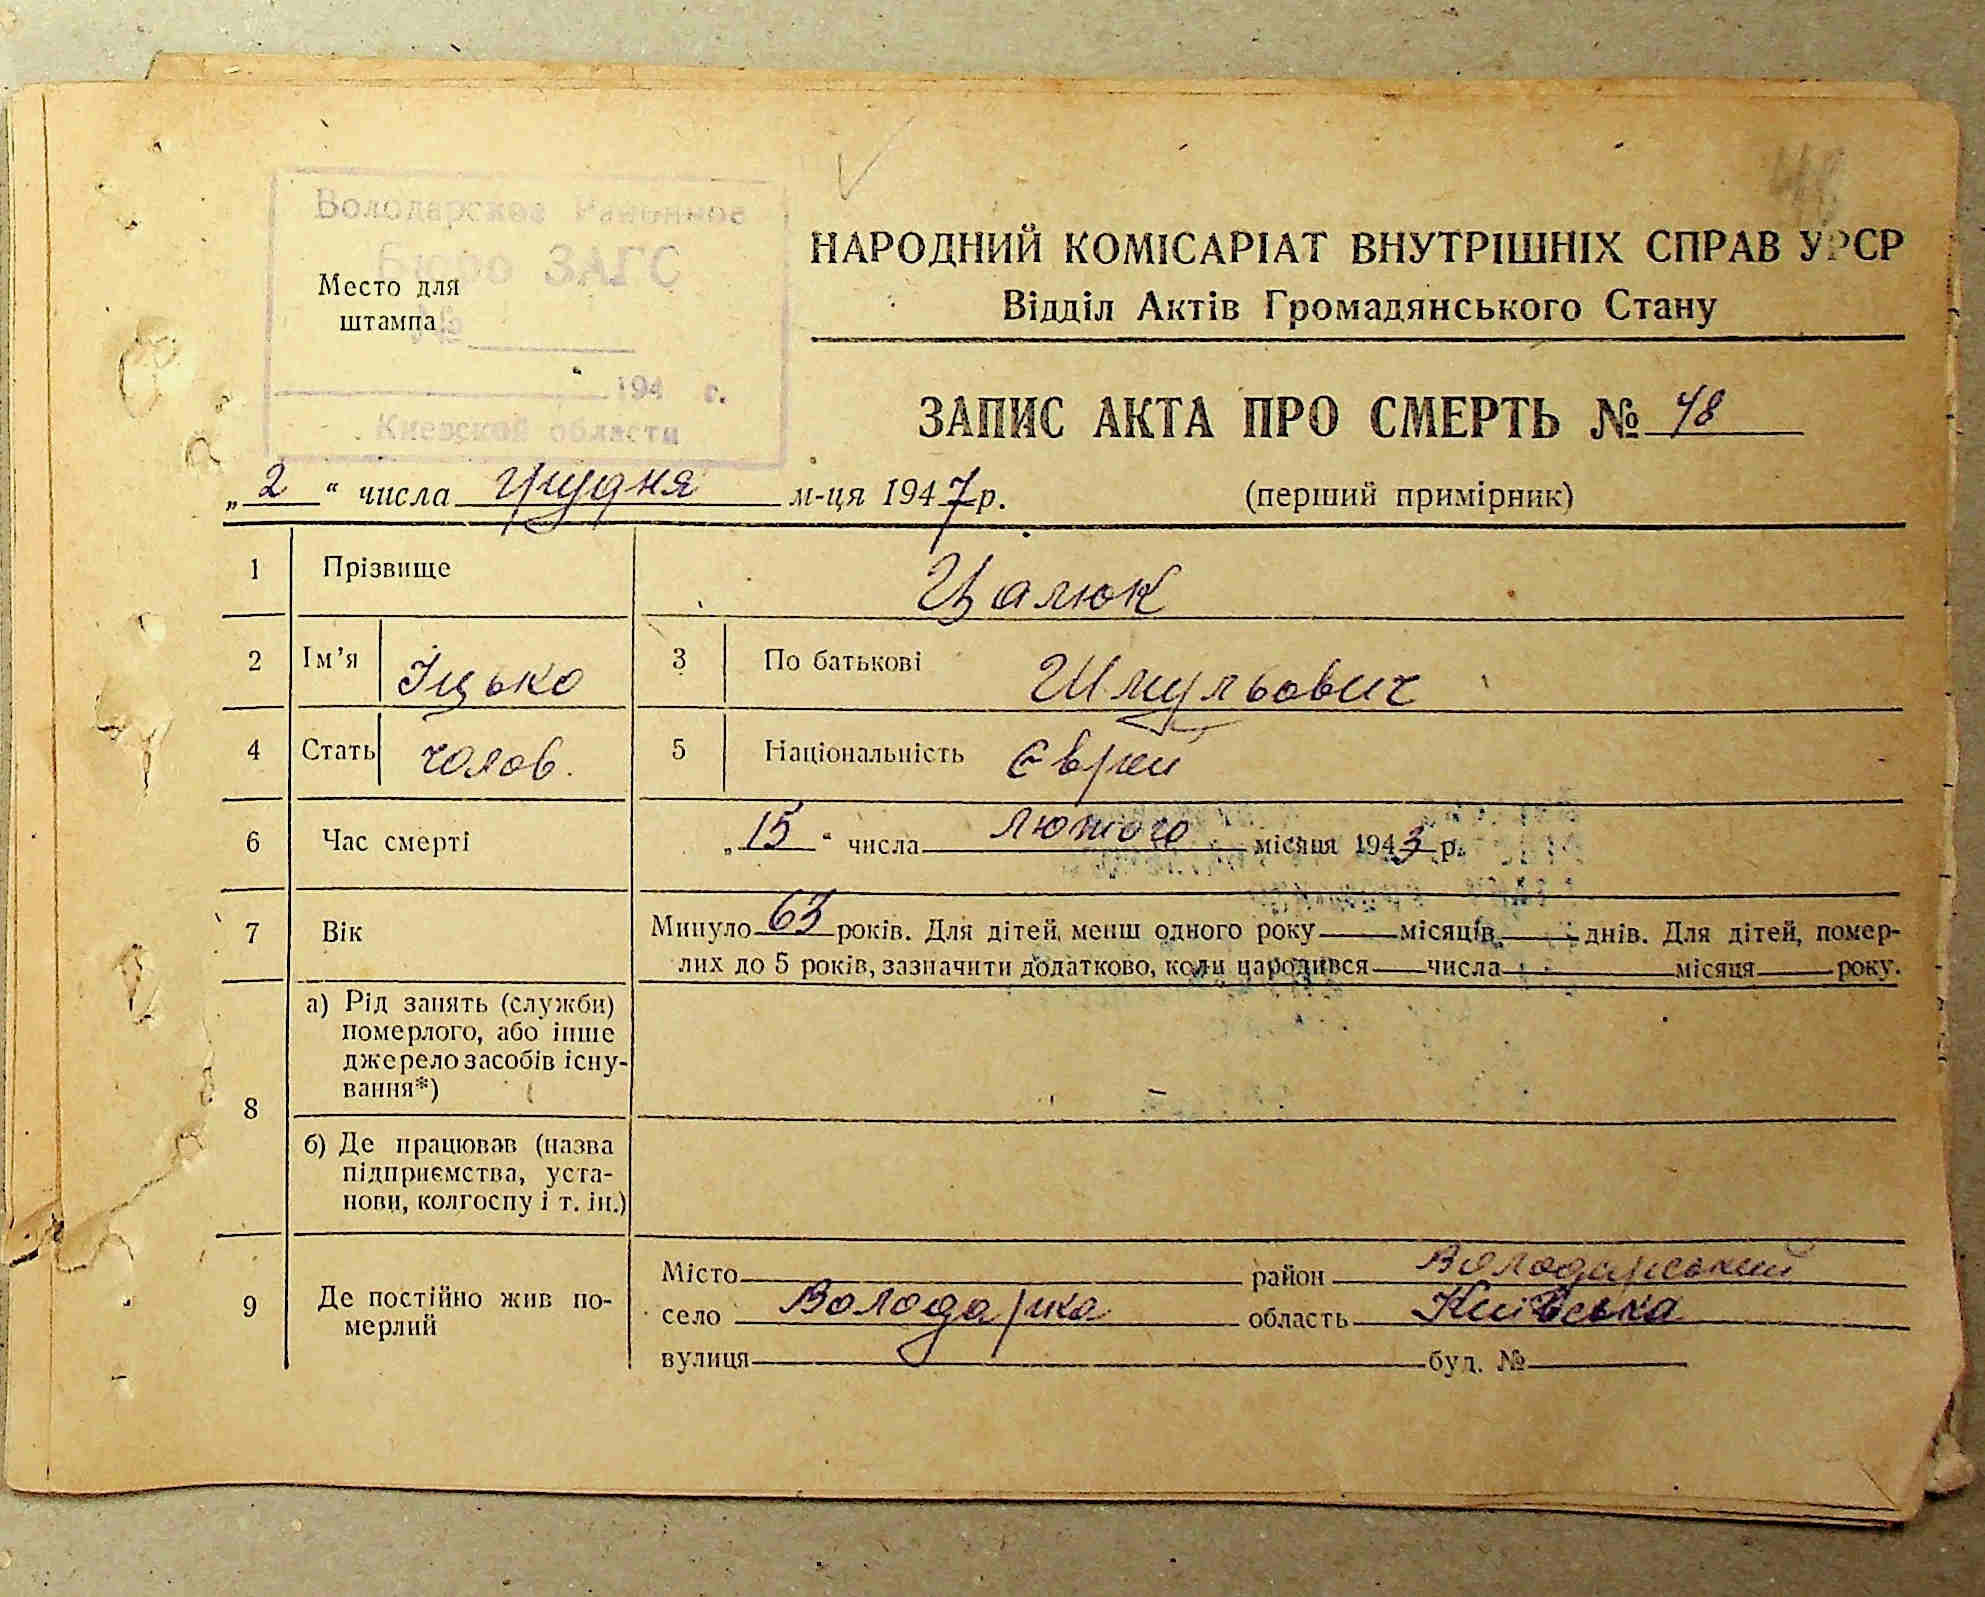 48
Володарское Районное
Бюро ЗАГС
Место для
штампа
№
194 г.
Киевской области
НАРОДНИЙ КОМІСАРІАТ ВНУТРІШНІХ СПРАВ УРСР
Відділ Актів Громадянського Стану
ЗАПИС АКТА ПРО СМЕРТЬ № 48
„2“ числа грудня м-ця 1947 р. (перший примірник)
1 Прізвище Цалюк
2 Ім’я Іцько 3 По батькові Шмульович
4 Стать чолов. 5 Національність Єврей
6 Час смерті „15“ числа лютого місяця 1943 р.
7 Вік Минуло 63 років. Для дітей, менш одного року місяців, днів. Для дітей, помер-
лих до 5 років, зазначити додатково, коли народився числа місяця року.
8 а) Рід занять (служби)
померлого, або інше
джерело засобів існу-
вання*)
–
б) Де працював (назва
підприємства, уста-
нови, колгоспу і т. ін.)
9 Де постійно жив по-
мерлий
Місто район Володарський
село Володарка область Київська
вулиця буд. №